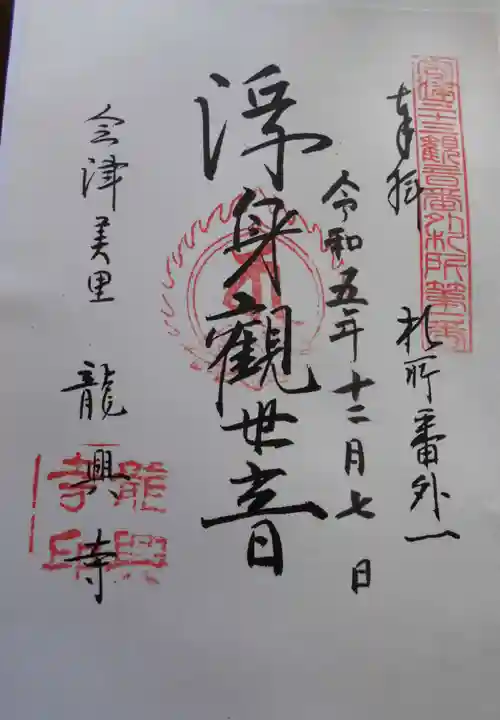 会津三十三観音番外札所第一番
奉拝
札所番外一
令和五年十二月七日
浮身観世音
会津美里 龍興寺
龍興寺印